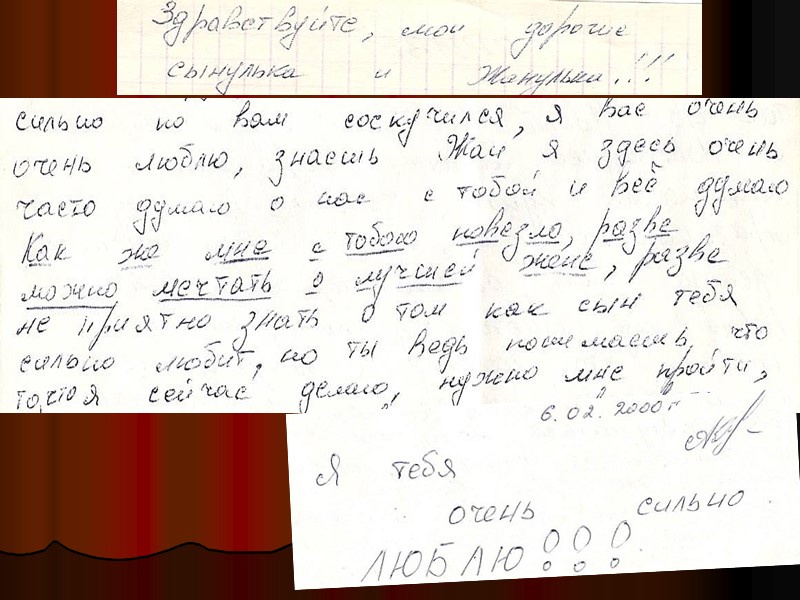 Здравствуйте, мои дорогие
сынулька и Жанулька!!!
сильно по вам соскучился, я вас очень
очень люблю, знаешь Жан я здесь очень
часто думаю о нас с тобой и всё думаю
Как же мне с тобою повезло, разве
можно мечтать о лучшей жене, разве
не приятно знать о том как сын тебя
сильно любит, но ты ведь понимаешь, что
то, что я сейчас делаю, нужно мне пройти,
6.02.2000г
Я тебя
очень сильно
ЛЮБЛЮ!!!